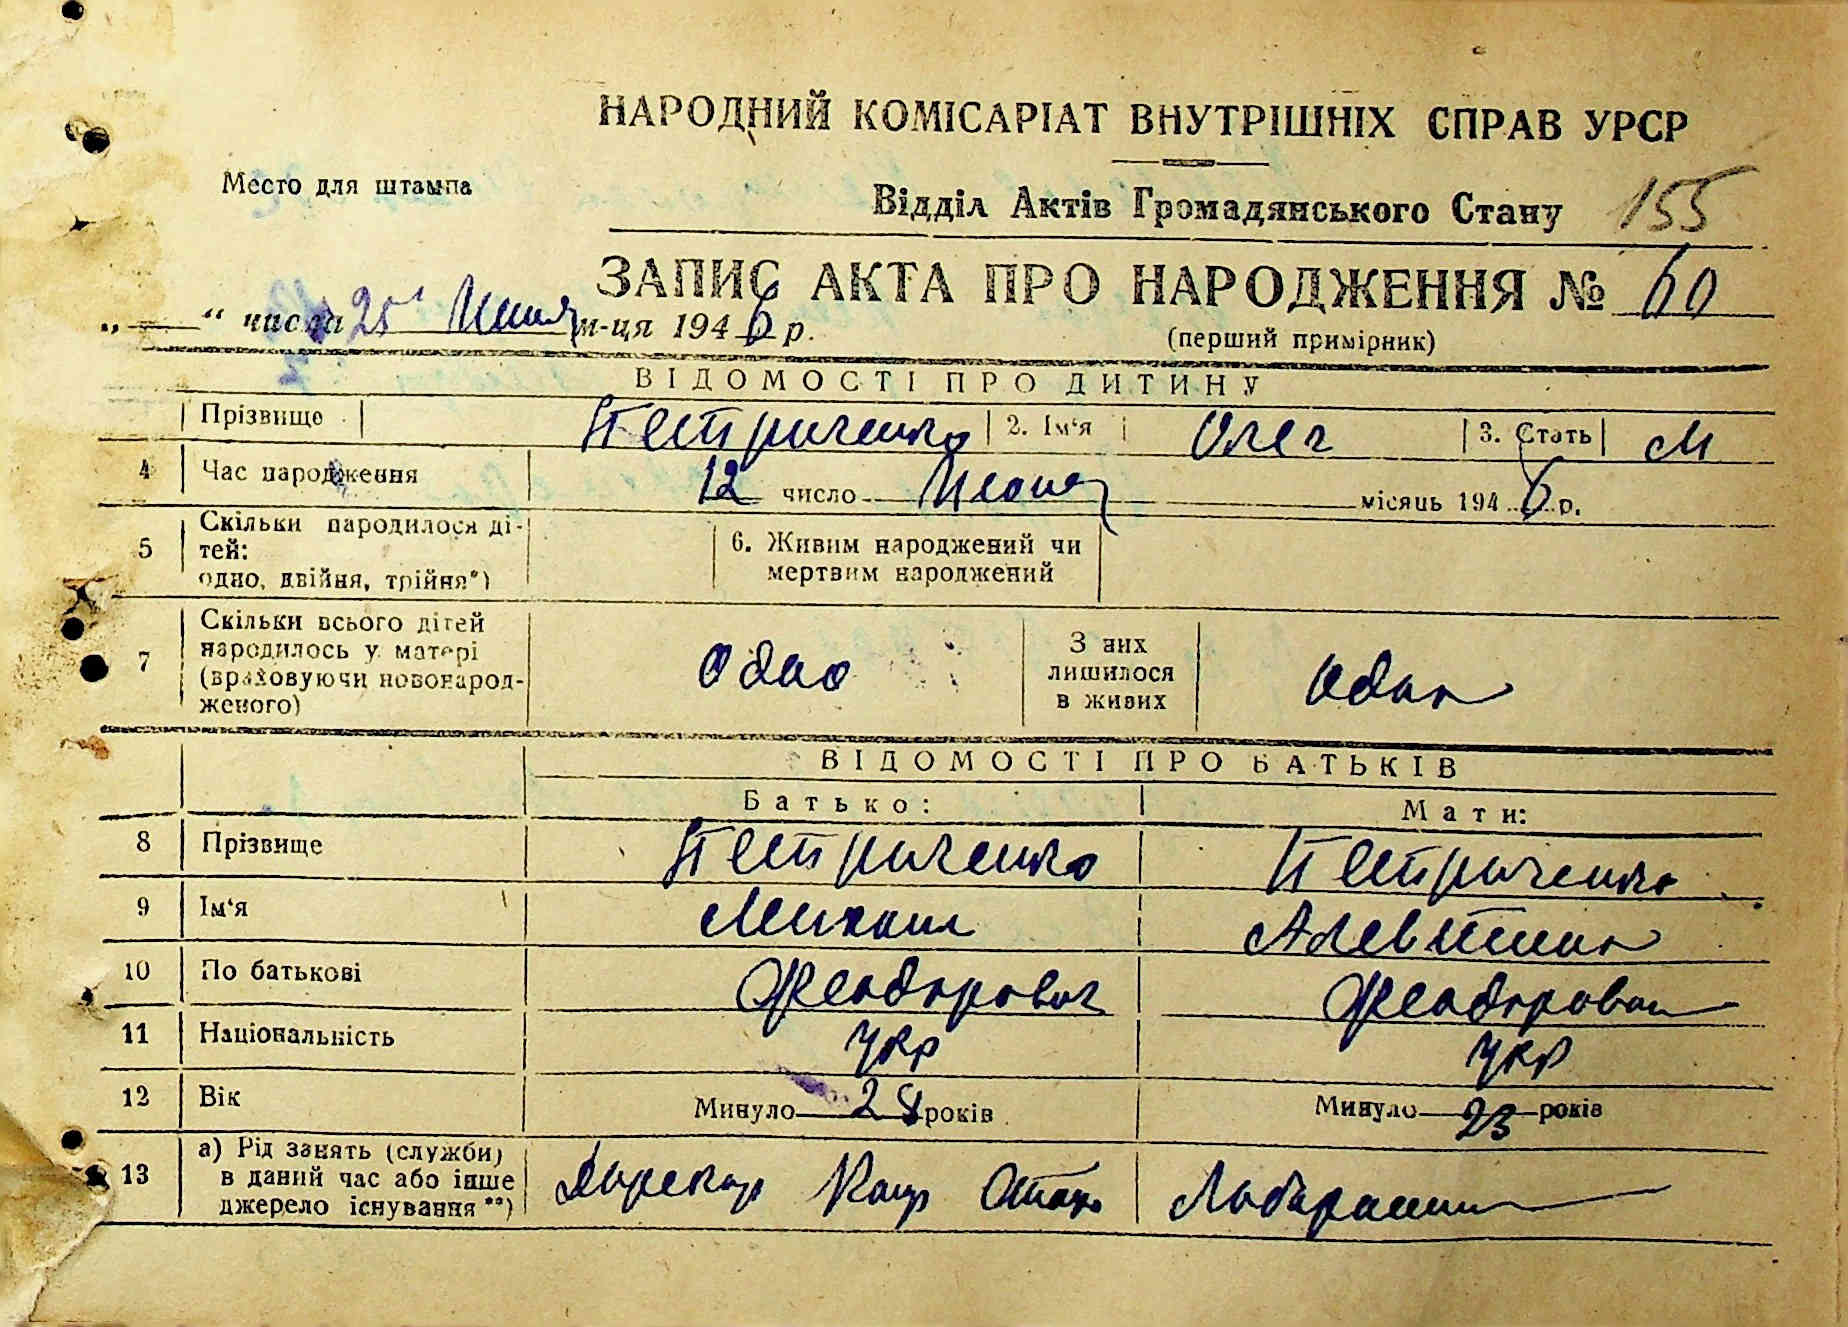 НАРОДНИЙ КОМІСАРІАТ ВНУТРІШНІХ СПРАВ УРСР
Место для штампа
Відділ Актів Громадянського Стану 155
ЗАПИС АКТА ПРО НАРОДЖЕННЯ № 60
„ “ числа 25 м-ця 1946 р.
(перший примірник)
ВІДОМОСТІ ПРО ДИТИНУ
Прізвище Пестриченко 2. Ім‘я Олег 3. Стать М
4 Час народження 12 число Июня місяць 1946 р.
5 Скільки народилося ді-
тей:
одно, двійня, трійня*)
6. Живим народжений чи
мертвим народжений
7 Скільки всього дітей
народилось у матері
(враховуючи новонарод-
женого)
Одно
З них
лишилося
в живих
Одно
ВІДОМОСТІ ПРО БАТЬКІВ
Батько: Мати:
8 Прізвище Пестриченко Пестриченко
9 Ім‘я Михаил Алевтина
10 По батькові Феодорович Феодоровна
11 Національність Укр Укр
12 Вік Минуло 28 років Минуло 23 років
13 а) Рід занять (служби)
в даний час або інше
джерело існування**)
Директор Лаборант